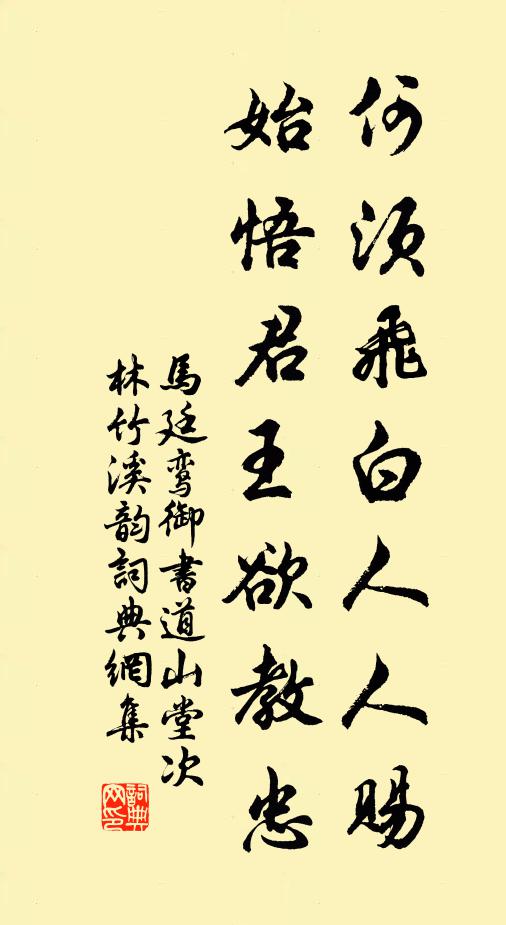 何須飛白人人賜
始悟君王欲教忠
馬廷鸞御書道山堂次
林竹溪韵詞典網集
詞典網印